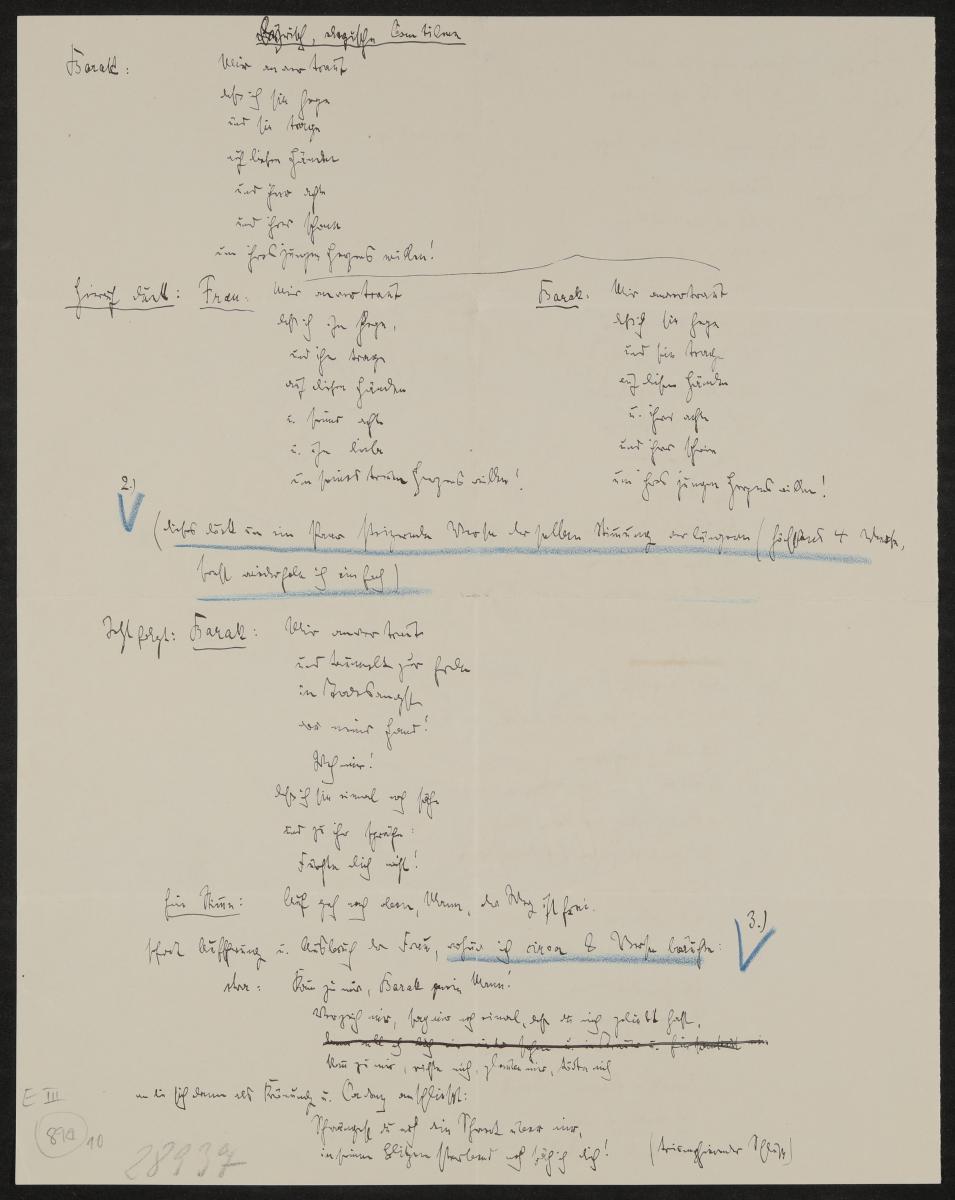 Lyrisch, elegische Cantilene
Barak: Mir anvertraut
daß ich sie hege
und sie trage
auf diesen Händen
und ihrer achte
und ihrer schone
um ihres jungen Herzens willen!
Hierauf Duett: Frau: Mir anvertraut Barak: Mir anvertraut
daß ich ihn hege, daß ich sie hege
und ihn trage und sie trage
auf diesen Händen auf diesen Händen
u. seiner achte u. ihrer achte
u. ihn liebe und ihrer schone
um seines treuen Herzens willen! um ihres jungen Herzens willen!
2.)
(dieses Duett um ein Paar steigernde Verse der selben Stimmung verlängern (höchstens 4 Verse,
sonst wiederhole ich einfach)
Jetzt folgt: Barak: Mir anvertraut
und taumelt zur Erde
in Todesangst
vor meiner Hand!
Weh mir!
daß ich sie einmal noch sähe
und zu ihr spräche:
Fürchte dich nicht!
Eine Stimme: Auf, geh nach oben, Mann, der Weg ist frei.
3.)
sofort Auffahrung u. Ausbruch der Frau, wozu ich circa 8 Verse bräuchte:
etwa: Komm zu mir, Barak mein Mann!
Verzeih mir, sag mir noch einmal, daß du mich geliebt hast,
Komm zu mir, richte mich, glaube mir, tödte mich
an die sich dann als Krönung u. Cadenz anschliesst:
Schwängest du auch dein Schwert über mir,
in seinen Blitzen sterbend noch sähe ich dich! (triumphierender Schluß)
E III
89a 10
28937